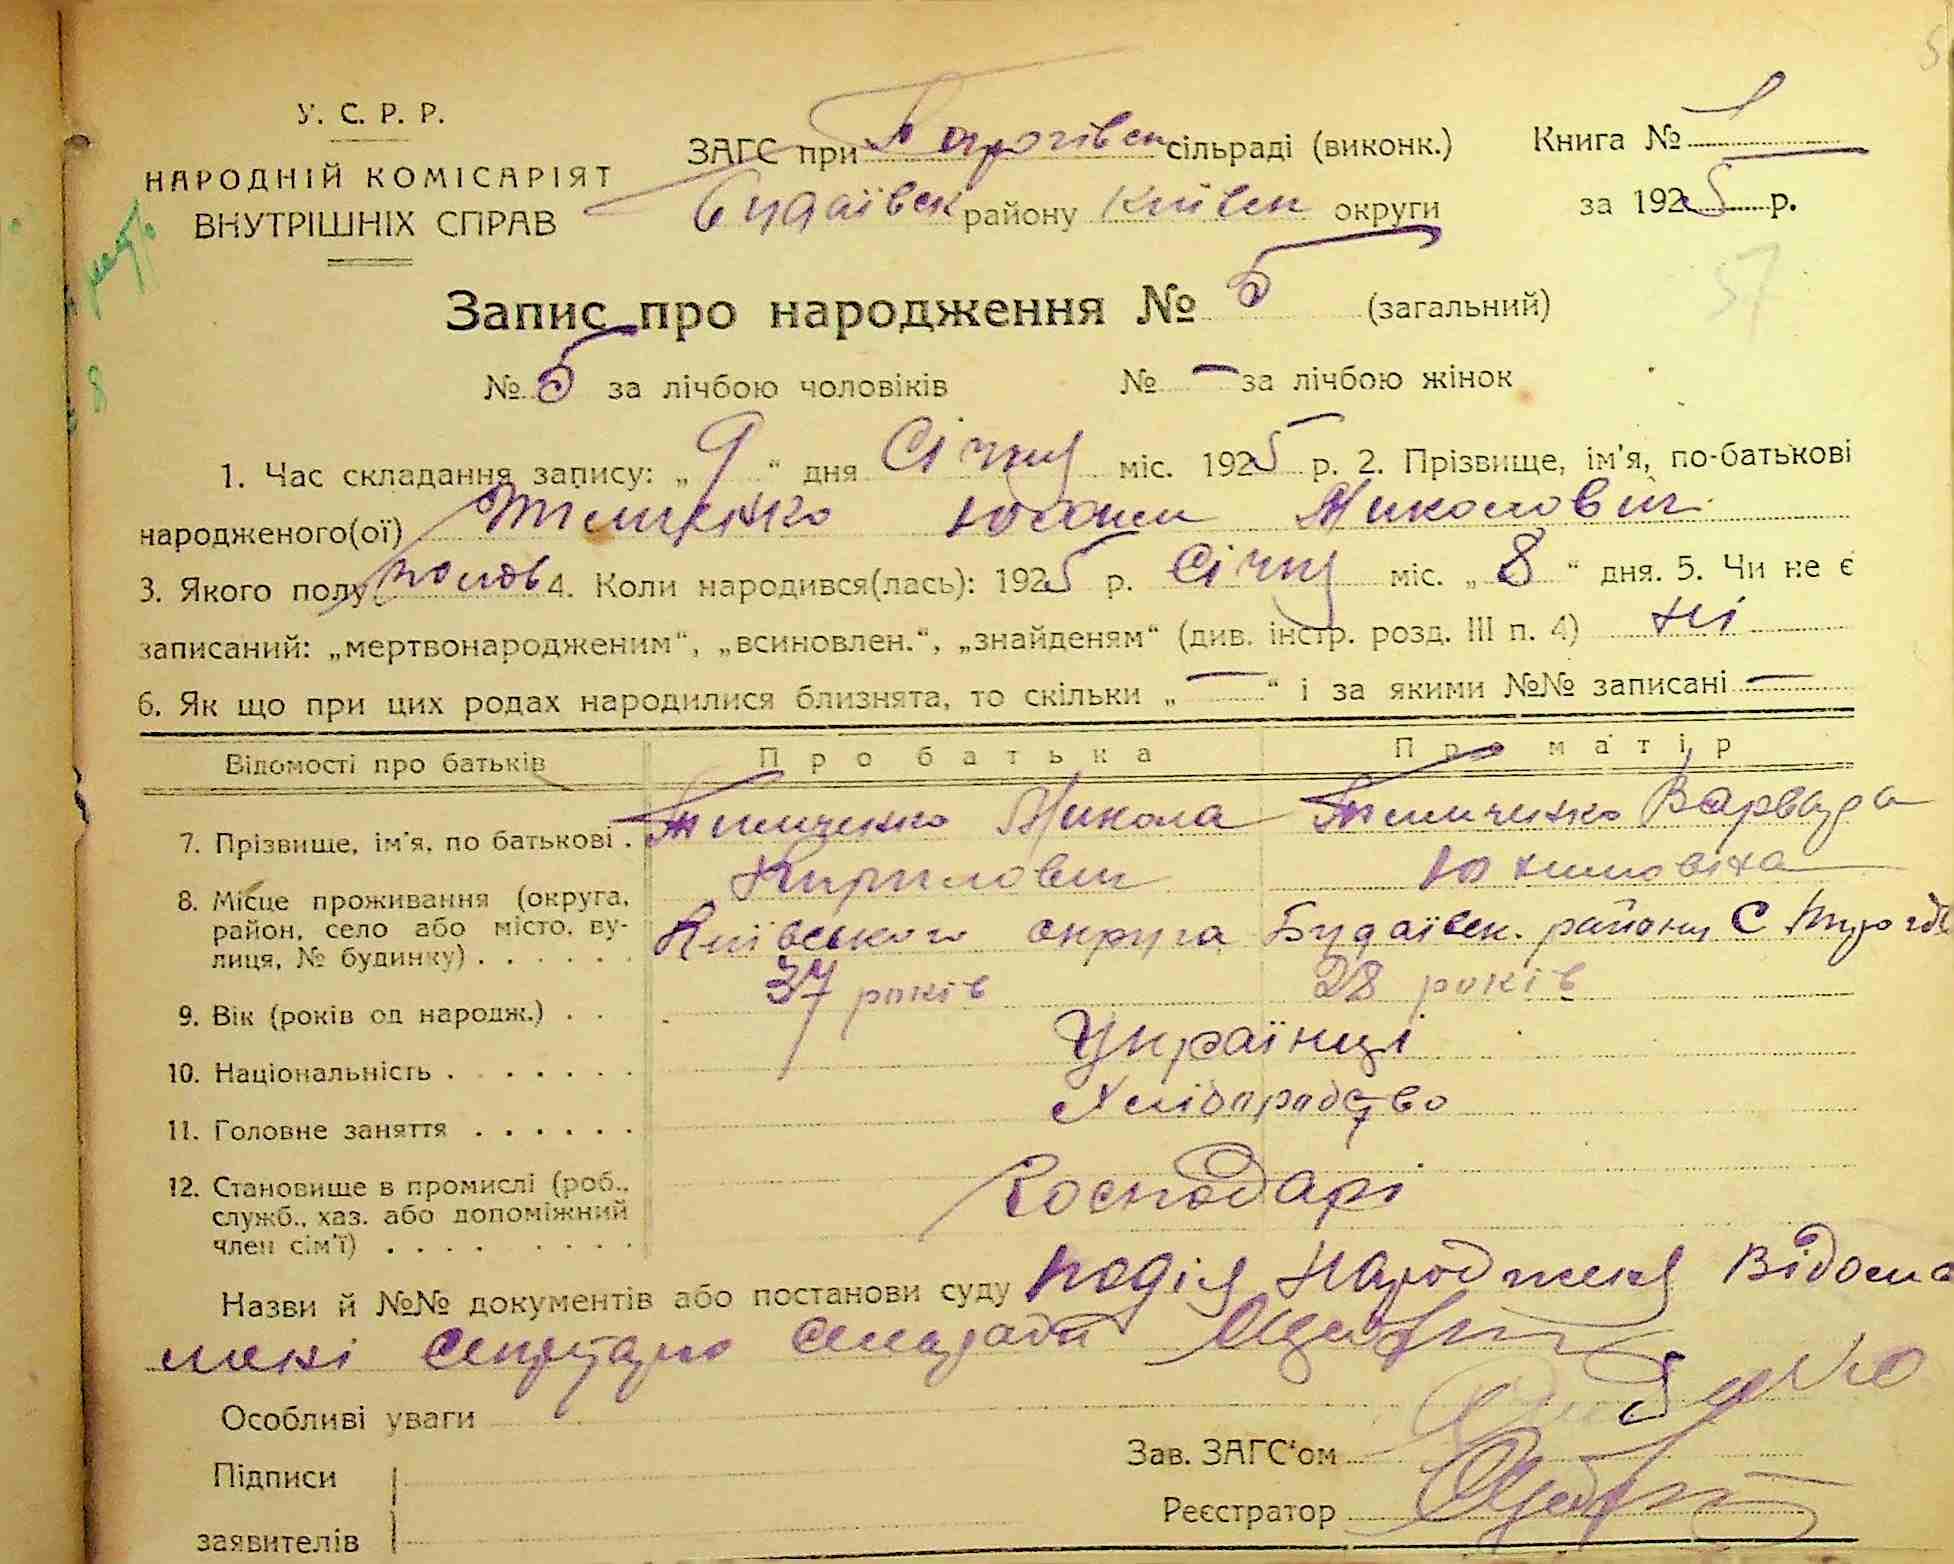 У. С. Р. Р.
НАРОДНІЙ КОМІСАРІЯТ
ВНУТРІШНІХ СПРАВ
ЗАГС при сільраді (виконк.)
Будаївск району Київск округи
Книга № 1
за 1925 р.
Запис про народження № 5 (загальний)
№ 5 за лічбою чоловіків № — за лічбою жінок
1. Час складання запису: „ 9 “ дня Січня міс. 1925 р. 2. Прізвище, ім'я, по-батькові
народженого(ої) Тимченко Миколович
3. Якого полу 4. Коли народився(лась): 1925 р. Січня міс. „ 8 “ дня. 5. Чи не є
записаний: „мертвонародженим“, „всиновлен.“, „знайденям“ (див. інстр. розд. III п. 4) ні
6. Як що при цих родах народилися близнята, то скільки „ — “ і за якими №№ записані —
Відомості про батьків Про батька Про матір
7. Прізвище, ім'я, по батькові . Тимченко Микола Тимченко Варвара
Кирилович
8. Місце проживання (округа,
район, село або місто, ву-
лиця, № будинку) . . . . . . Київського округа Будаївск. району С
9. Вік (років од народж.) . . 37 років 28 років
10. Національність . . . . . . . Українці
11. Головне заняття . . . . . . Хліборобство
12. Становище в промислі (роб.,
служб., хаз. або допоміжний
член сім'ї) . . . . . . . . Господарі
Назви й №№ документів або постанови суду подія народження Відома
мені секретарю сельради
Особливі уваги
Зав. ЗАГС'ом
Підписи
Реєстратор
заявителів